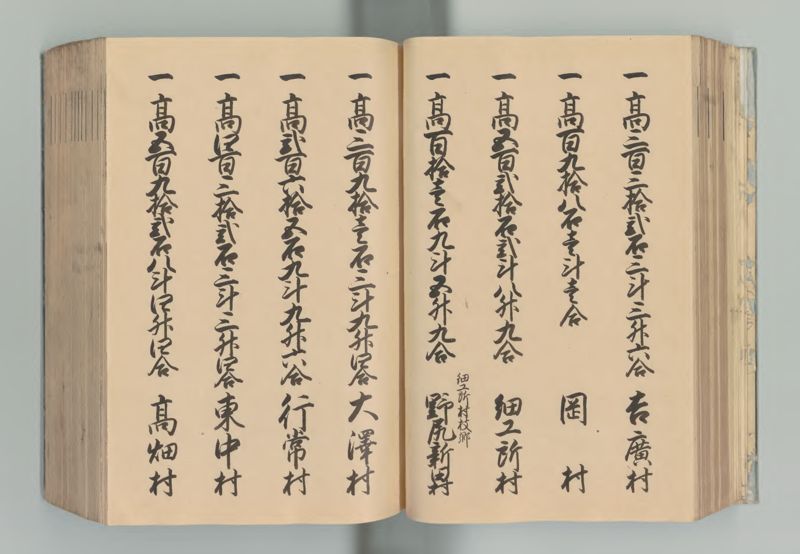 一高三百三拾弐石三斗三升六合 吉廣村
一高百九拾八石壱斗壱合 岡村
一高五百弐拾石弐斗八升九合 細工所村
細工所村枝郷
一高百拾壱石九斗五升九合 野尻新田村
一高三百九拾壱石三斗九升四合 大澤村
一高弐百六拾五石九斗九升六合 行常村
一高四百三拾弐石三斗三升四合 東中村
一高五百九拾弐石八斗四升四合 高畑村